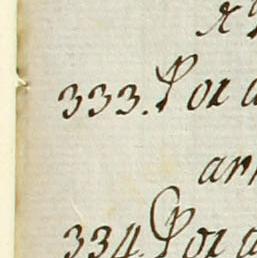 333. Por a
arr
334. Por a